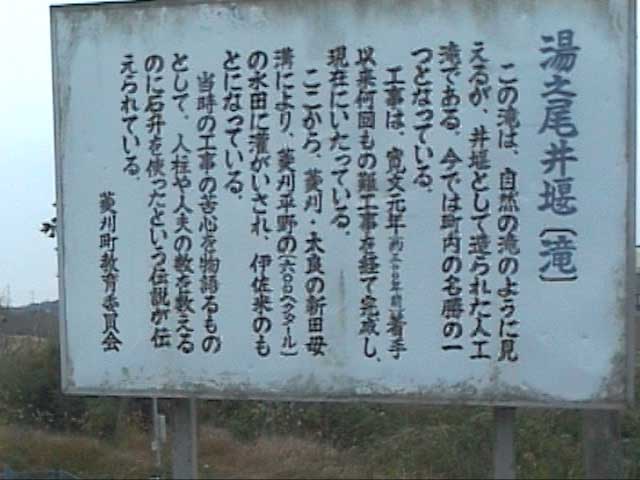 湯之尾井堰〔滝〕
この滝は、自然の滝のように見
えるが、井堰として造られた人工
滝である。今では町内の名勝の一
つとなっている。
工事は、寛文元年 着手
以来何回もの難工事を経て完成し、
現在にいたっている。
ここから、菱刈・太良の新田母
溝により、菱刈平野の(六〇〇ヘクタール)
の水田に灌がいされ、伊佐米のも
とになっている。
当時の工事の苦心を物語るもの
として、人柱や人夫の数を数える
のに石升を使ったという伝説が伝
えられている。
菱刈町教育委員会